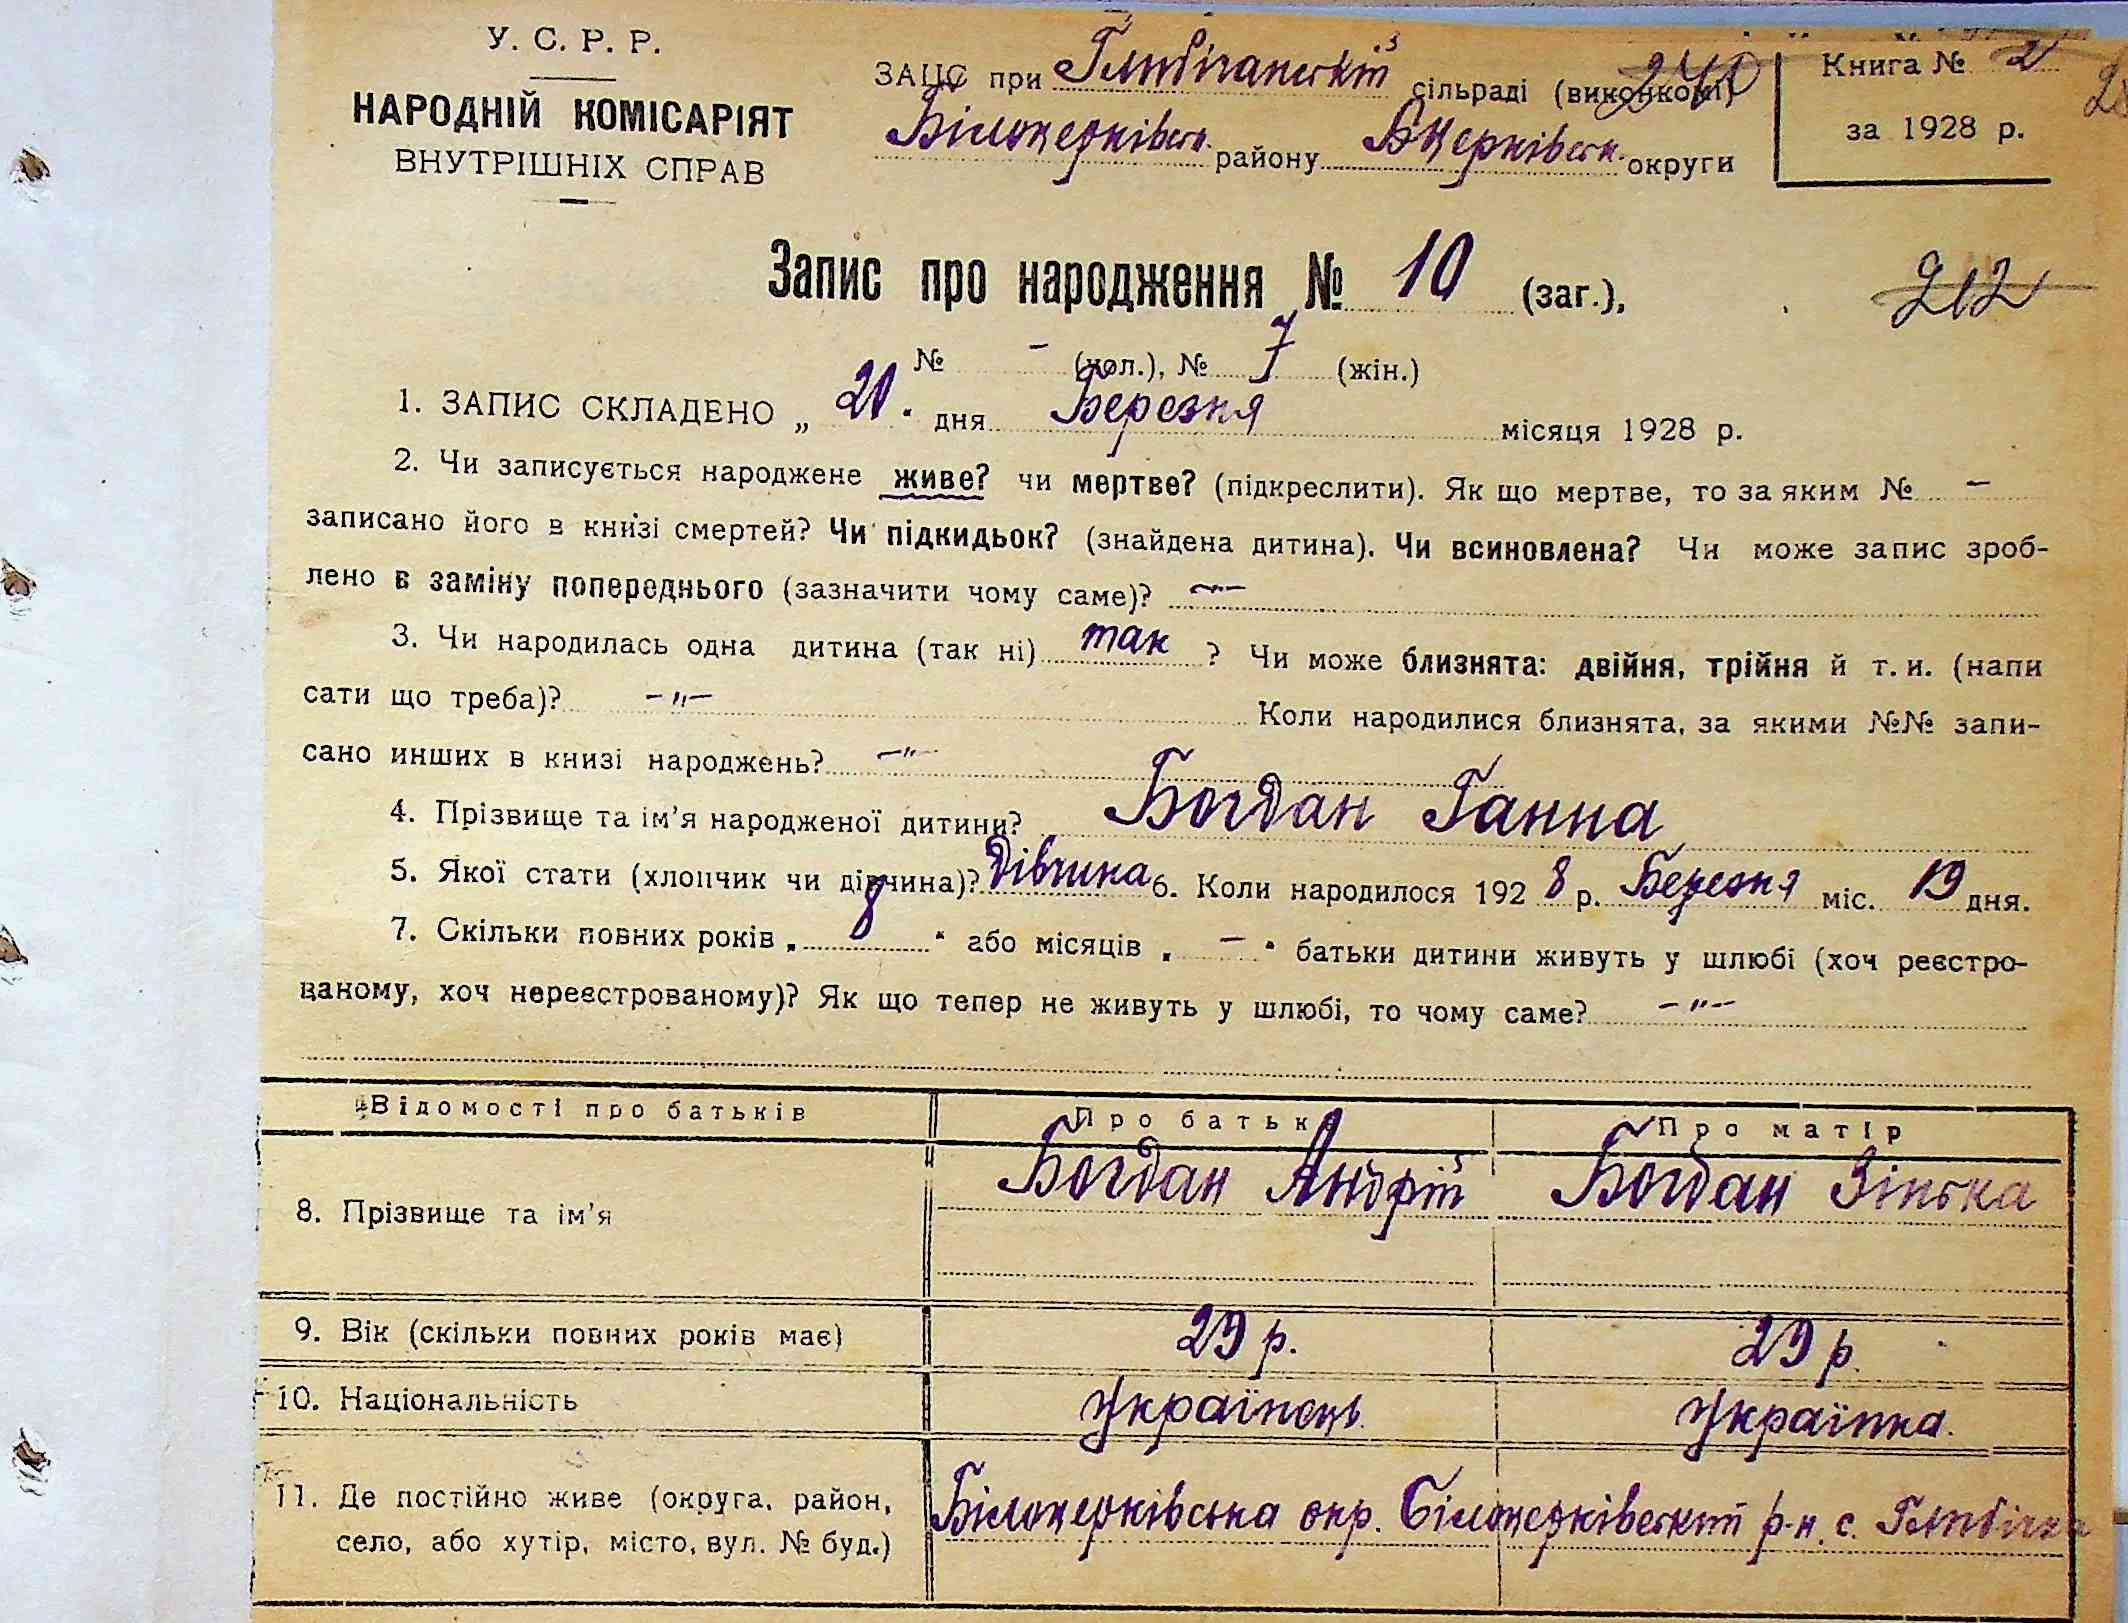 У. С. Р. Р.
НАРОДНІЙ КОМІСАРІЯТ
ВНУТРІШНІХ СПРАВ
ЗАЦС при Глибічанській сільраді (виконкомі)
Білоцерківськ. району Бцерківськ. округи
Книга № 2
за 1928 р.
Запис про народження № 10 (заг.),
212
№ - (чол.), № 7 (жін.)
1. ЗАПИС СКЛАДЕНО „ 20 “ дня Березня місяця 1928 р.
2. Чи записується народжене живе? чи мертве? (підкреслити). Як що мертве, то за яким № -
записано його в книзі смертей? Чи підкидьок? (знайдена дитина). Чи всиновлена? Чи може запис зроб-
лено в заміну попереднього (зазначити чому саме)? -"-
3. Чи народилась одна дитина (так ні) так ? Чи може близнята: двійня, трійня й т. и. (напи
сати що треба)? -"- Коли народилися близнята, за якими №№ запи-
сано инших в книзі народжень? -"-
4. Прізвище та ім'я народженої дитини? Богдан Ганна
5. Якої стати (хлопчик чи дівчина)? Дівчина 6. Коли народилося 192 8 р. Березня міс. 19 дня.
7. Скільки повних років „ 8 “ або місяців „ - “ батьки дитини живуть у шлюбі (хоч реєстро-
ваному, хоч нереєстрованому)? Як що тепер не живуть у шлюбі, то чому саме? -"-
Відомості про батьків Про батька Про матір
8. Прізвище та ім'я Богдан Андрій Богдан Зінька
9. Вік (скільки повних років має) 29 р. 29 р.
10. Національність Українець. Українка.
11. Де постійно живе (округа, район, Білоцерківська окр. Білоцерківський р-н. с. Глибічка
село, або хутір, місто, вул. № буд.)